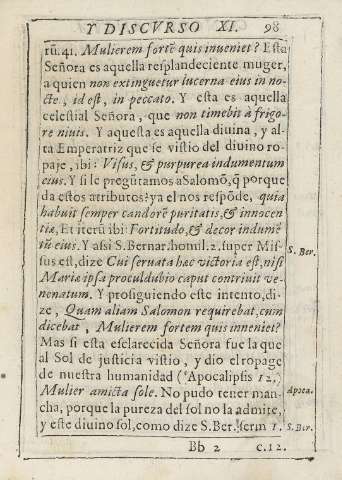 Y DISCVRSO XI. 98
tū.41. Mulierem fortē quis inueniet? Esta
Señora es aquella resplandeciente muger,
a quien non extinguetur lucerna eius in no-
cte, id est, in peccato. Y esta es aquella
celestial Señora, que non timebit à frigo-
re niuis. Y aquesta es aquella diuina, y al-
ta Emperatriz que se vistio del diuino ro-
paje, ibi: Visus, & purpurea indumentum
eius. Y si le pregūtamos a Salomõ, q̃ porque
da estos atributos? ya el nos respõde, quia
habuit semper candorē puritatis, & innocen
tiæ, Et iterū ibi: Fortitudo, & decor indumē
tū eius. Y assi S. Bernar. homil. 2. super Mis-
sus est, dize Cui seruata hæc victoria est, nisi
Mariæ ipsa proculdubio caput contriuit ve-
nenatum. Y prosiguiendo este intento, di-
ze, Quam aliam Salomon requirebat, cum
dicebat, Mulierem fortem quis inneniet?
Mas si esta esclarecida Señora fue la que
al Sol de justicia vistio, y dio el ropage
de nuestra humanidad (Apocalipsis 12,)
Mulier amicta sole. No pudo tener man-
cha, porque la pureza del sol no la admite,
y este diuino sol, como dize S. Ber. serm 1.
Bb 2 c.12.
S. Ber.
Apoca.
S. Ber.